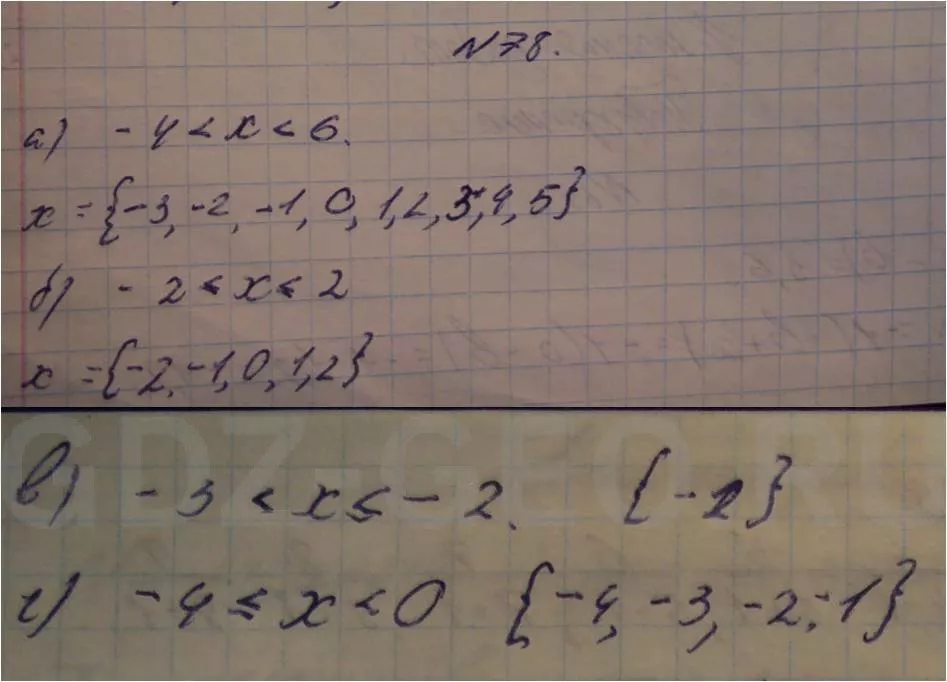 N78.
а) -4 < x < 6.
x = {-3, -2, -1, 0, 1, 2, 3, 4, 5}
б) -2 ≤ x ≤ 2
x = {-2, -1, 0, 1, 2}
GDZ-GEO.RU
в) -3 < x ≤ -2. {-2}
г) -4 ≤ x < 0 {-4, -3, -2, -1}